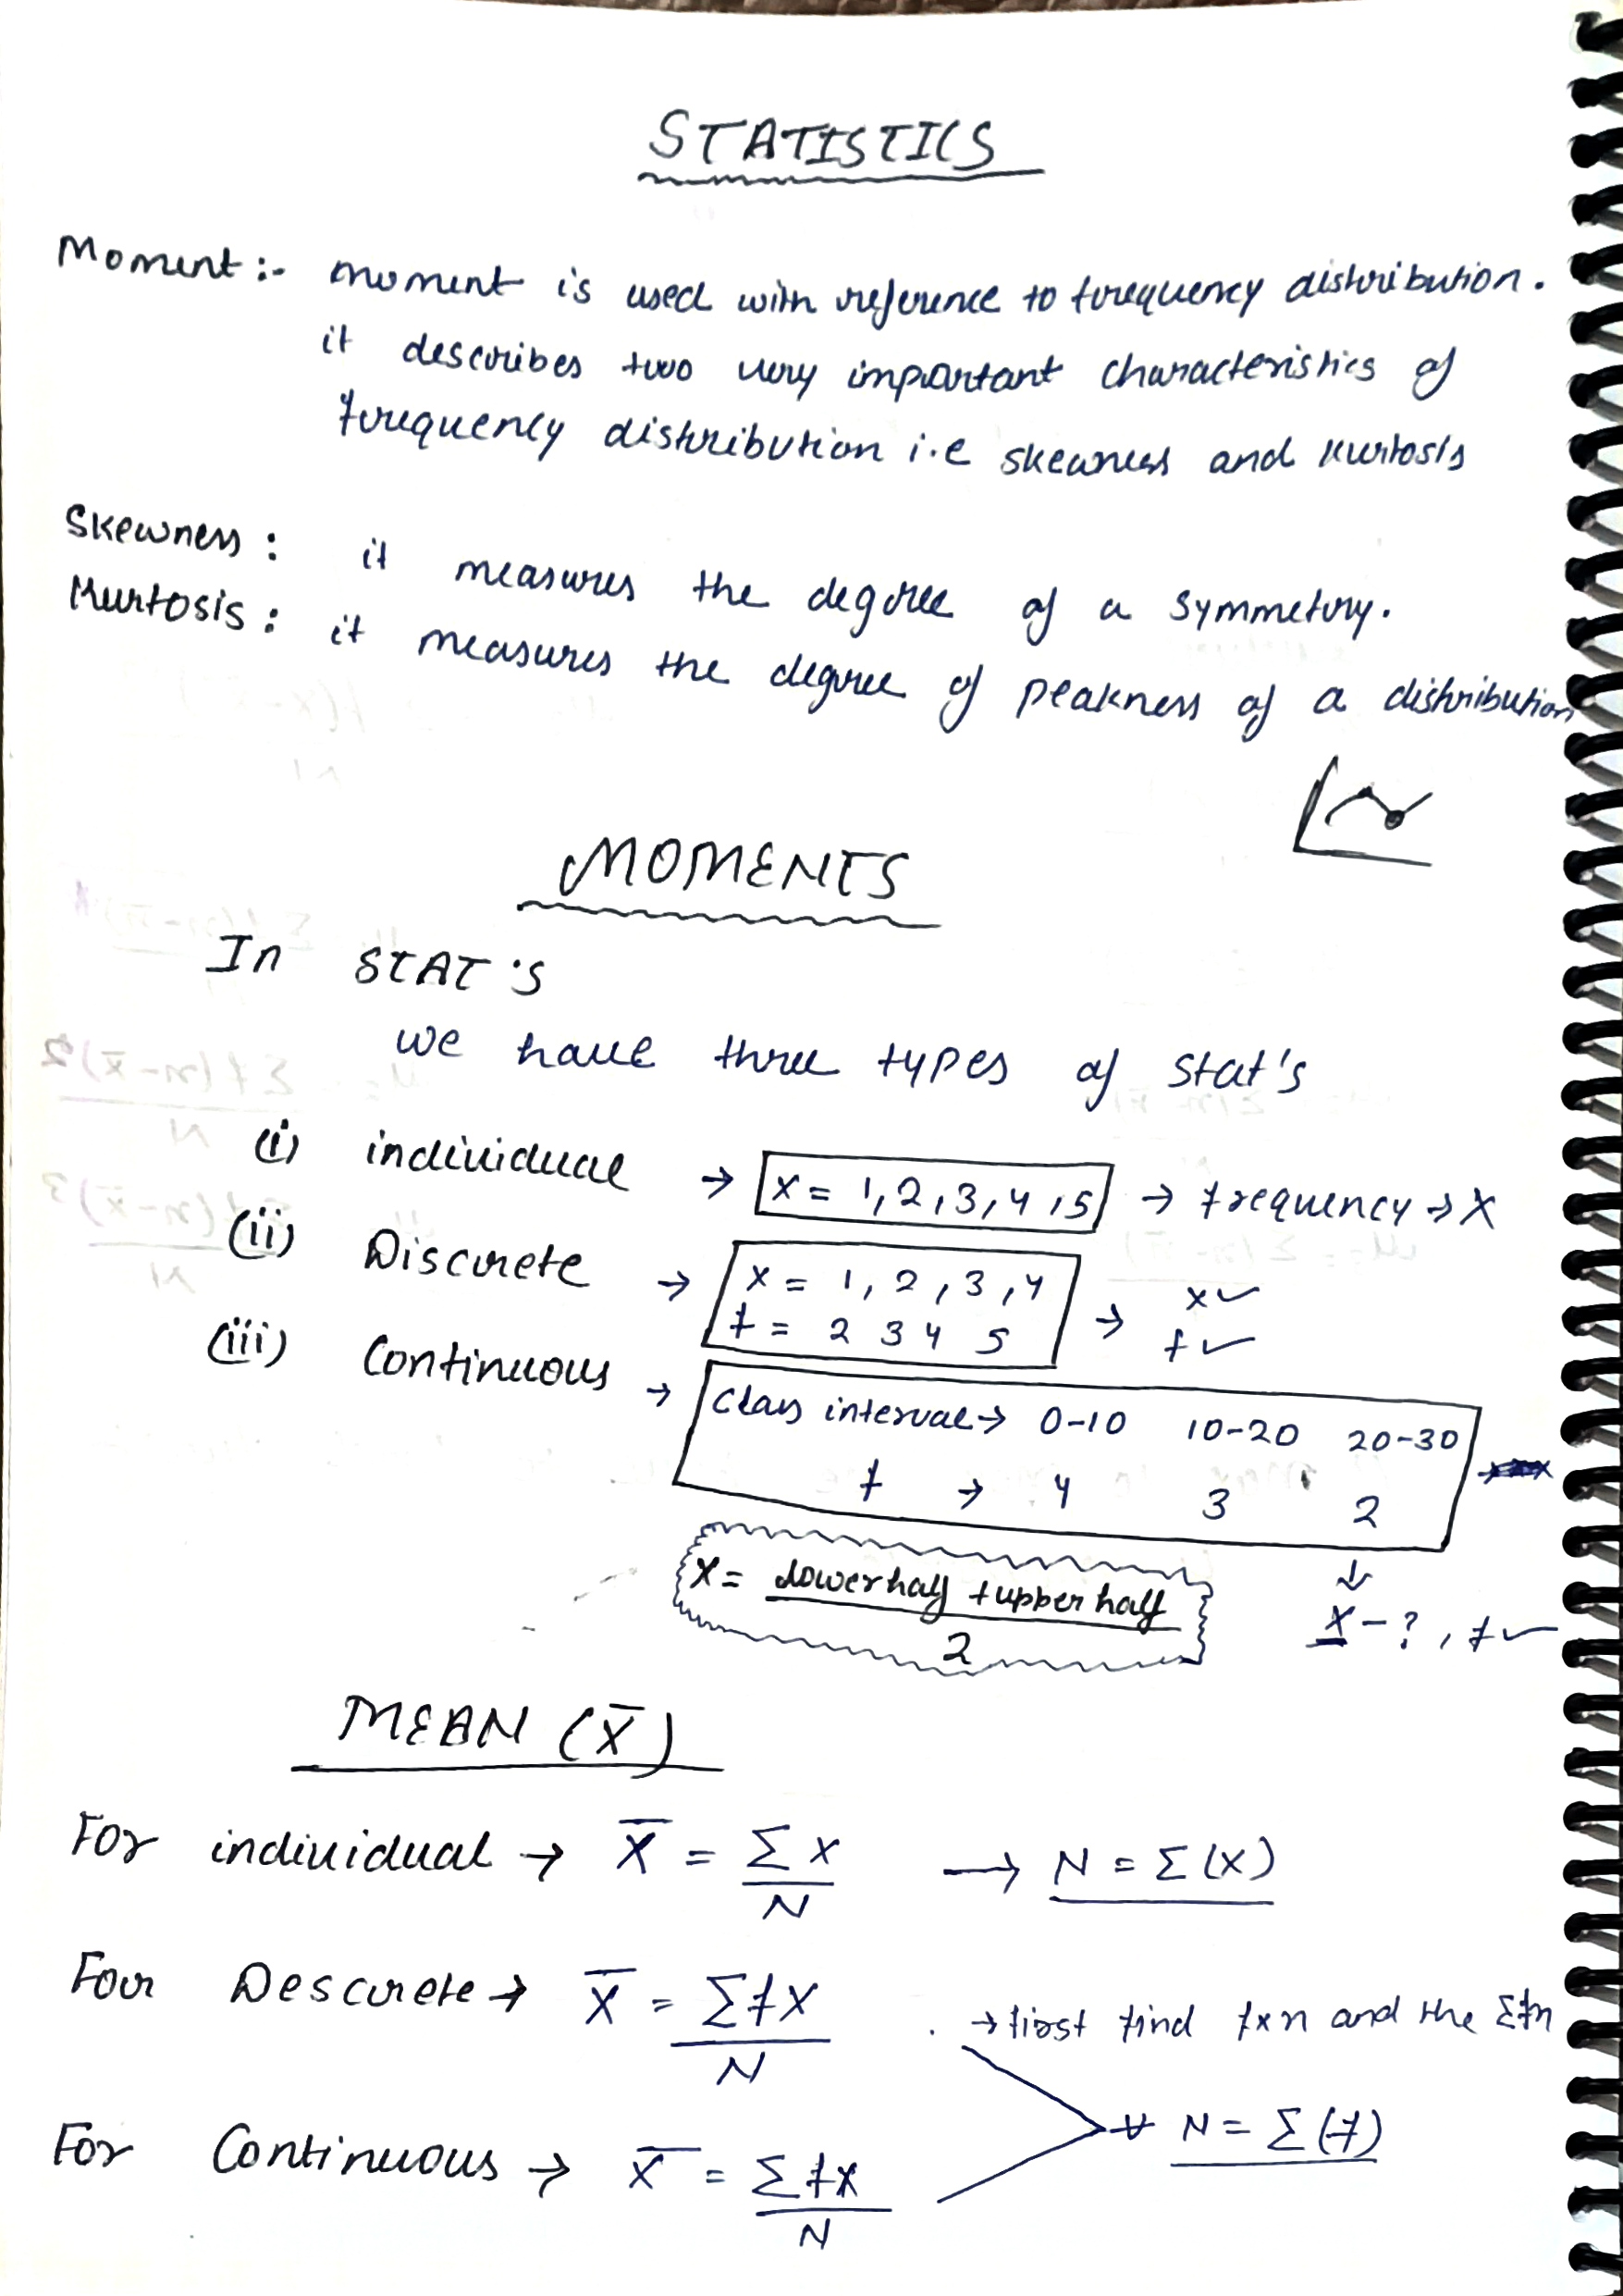 STATISTICS
Moment :- moment is used with reference to frequency distribution.
it describes two very important characteristics of
frequency distribution i.e skewness and kurtosis
Skewness : it measures the degree of a symmetry.
Kurtosis : it measures the degree of peakness of a distribution
MOMENTS
In STAT'S
we have three types of stat's
(i) individual → x = 1, 2, 3, 4, 5 → frequency → X
(ii) Discrete → x = 1, 2, 3, 4 → x ✓
f = 2 3 4 5 f ✓
(iii) Continuous → Class interval → 0-10 10-20 20-30
f → 4 3 2
↓
X = Lower half + upper half / 2
X - ? , f ✓
MEAN (X̄)
For individual → X̄ = Σx / N → N = Σ(X)
For Descrete → X̄ = Σfx / N → first find f x n and the Σfn
For Continuous → X̄ = Σfx / N
N = Σ(f)